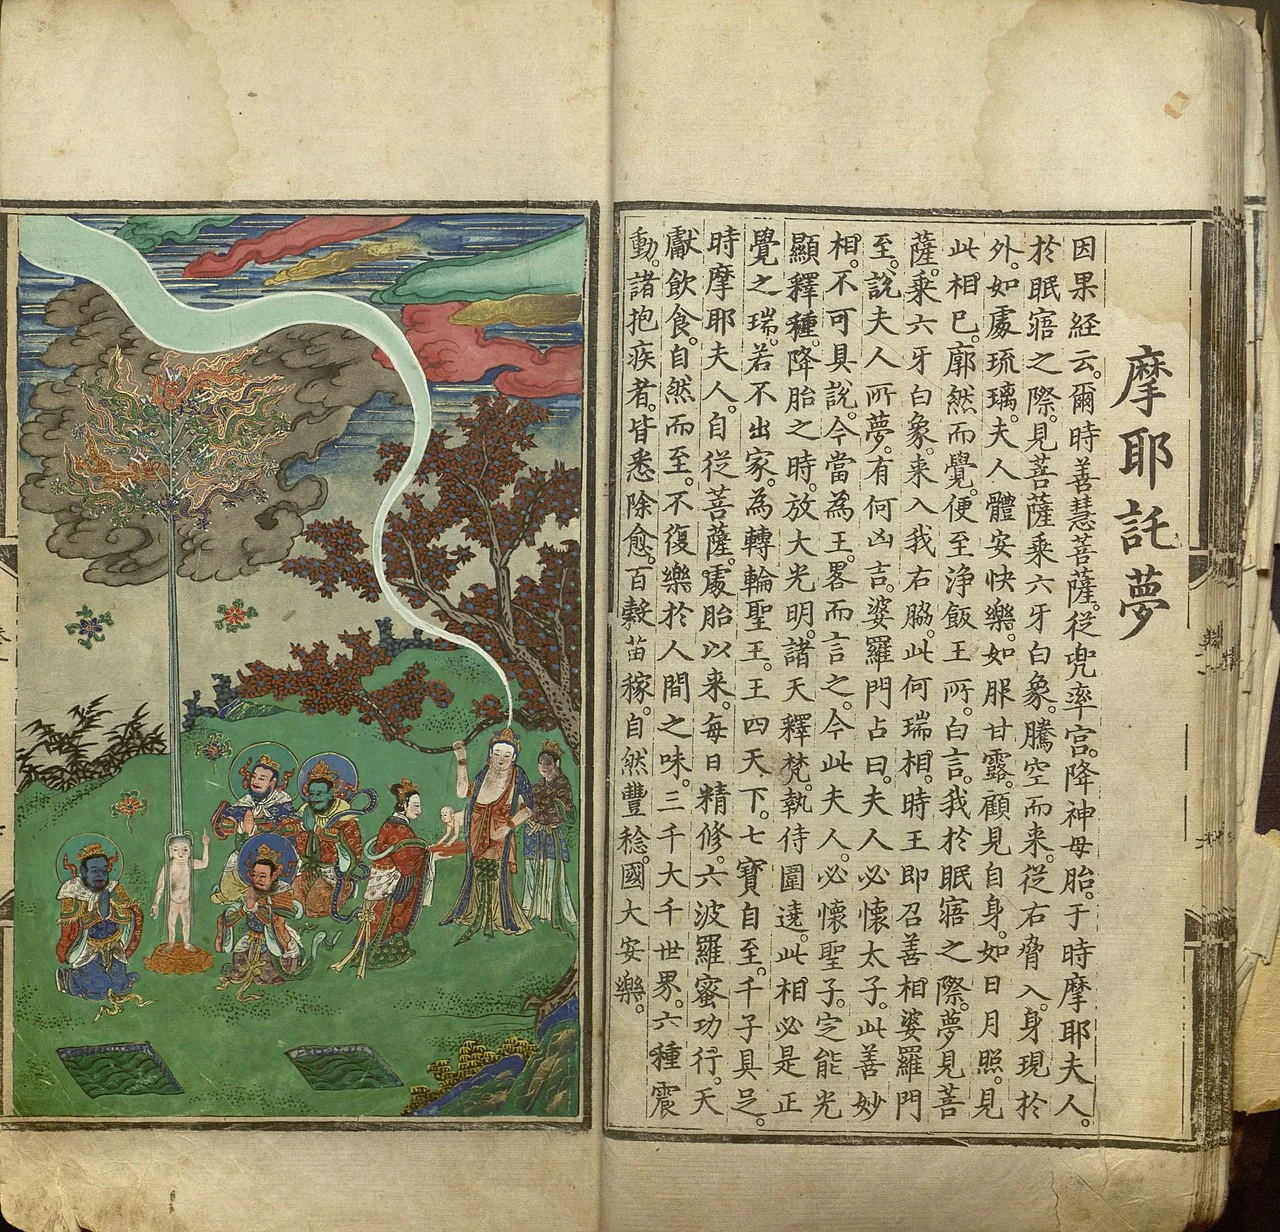 摩耶託夢
因果経云。爾時善慧菩薩。從兜率宮。降神母胎。于時摩耶夫人。
於眠寤之際。見菩薩乘六牙白象。騰空而来。從右脅入。身現於
外。如處琉璃。夫人體安快樂。如服甘露。顧見自身。如日月照。見
此相已。廓然而覺。便至淨飯王所。白言。我於眠寤之際。夢見菩
薩。乘六牙白象。来入我右脇。此何瑞相。時王即召善相婆羅門
至。說夫人所夢。有何凶吉。婆羅門占曰。夫人必懐太子。此善妙
相。不可具說。今當為王。畧而言之。今此夫人。必懐聖子。定能光
顯釋種。降胎之時。放大光明。諸天釋梵。執侍圍遶。此相必是正
覺之瑞。若不出家。為轉輪聖王。王四天下。七寶自至。千子具足。
時摩耶夫人。自從菩薩。處胎以来。每日精修。六波羅蜜功行。天
獻飲食。自然而至。不復樂於人間之味。三千大千世界。六種震
動。諸抱疾者。皆悉除愈。百穀苗稼。自然豐稔。國大安樂。